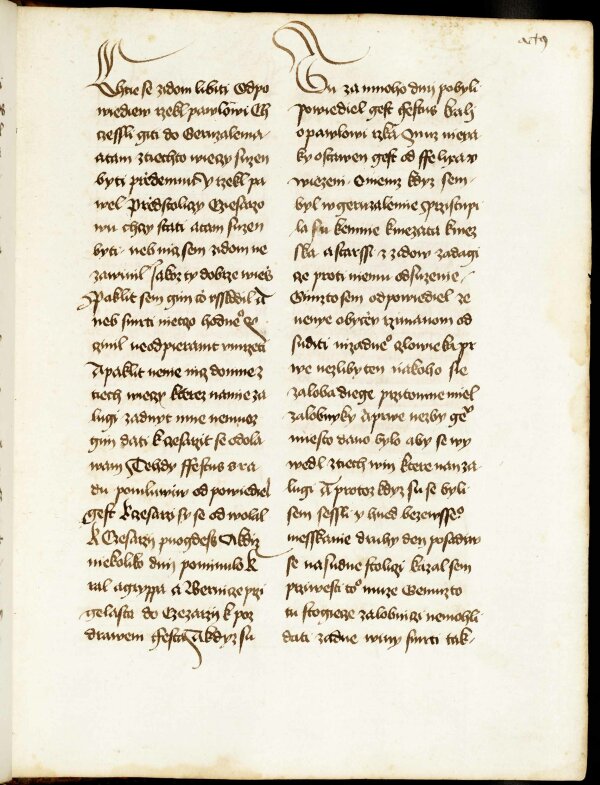 Chtie se zidom libiti Odpo
wiediew rzekl pawlowi Ch
czessli giti do Geruzalema
atam ztiechto wieczy suzen
byti předemnu Y rzekl pa
wel Předstoliczy Czesarzo
wu chczy stati atam suzen
byti neb nicz sem zidom ne
zawinil Jakoz ty dobrze wies
Paklit sem gim co vsskodil A
neb smrti nieczo hodneo
zinil neodpieramt vmrzeti
Apaklit nenie nicz domne z
tiech wieczy kterez namie za
lugi zadnyt mne nemuoz
gim dati k czesarzit se odola
wam Tehdy ffestus s ra
du pomluwiw odpowiediel
gest K czesarzi sy se odwolal
K Czesarzij puogdess A kdiz
niekoliko dnij pominulo k
ral agrippa a Bernicze przi
gelasta do Czezarzij k poz
drawem ffesta A kdyz su
actg
Tu za mnoho dnij pobyli
powiediel gest ffestus krali
o pawlowi rzka Muz niera
ky ostawen gest od ffelixa w
wiezeni Oniemz kdyz sem
byl w geruzalemie Przistupi
la su kemnie kniezata kniez
ska a starssi z zidow zadagi
cze proti niemu odsuzenie
Gimzto sem odpowiediel ze
nenye obyczey rzimanom od
suditi nizadneo czlowieka pr
we nezliby ten nakoho sie
zaloba diege przitomne miel
zalobnyky A prwe nezby geo
miesto dano bylo aby se wy
wedl ztiech win ktere nan za
lugi A protoz kdyz su se byli
sem sessli y hned bezewsseo
messkanie druhy den posadiw
se nasudne stoliczi kazal sem
priwesti to muze Gemuzto
tu stogiecze zalobnici nemohli
dati zadne winy smrti tak